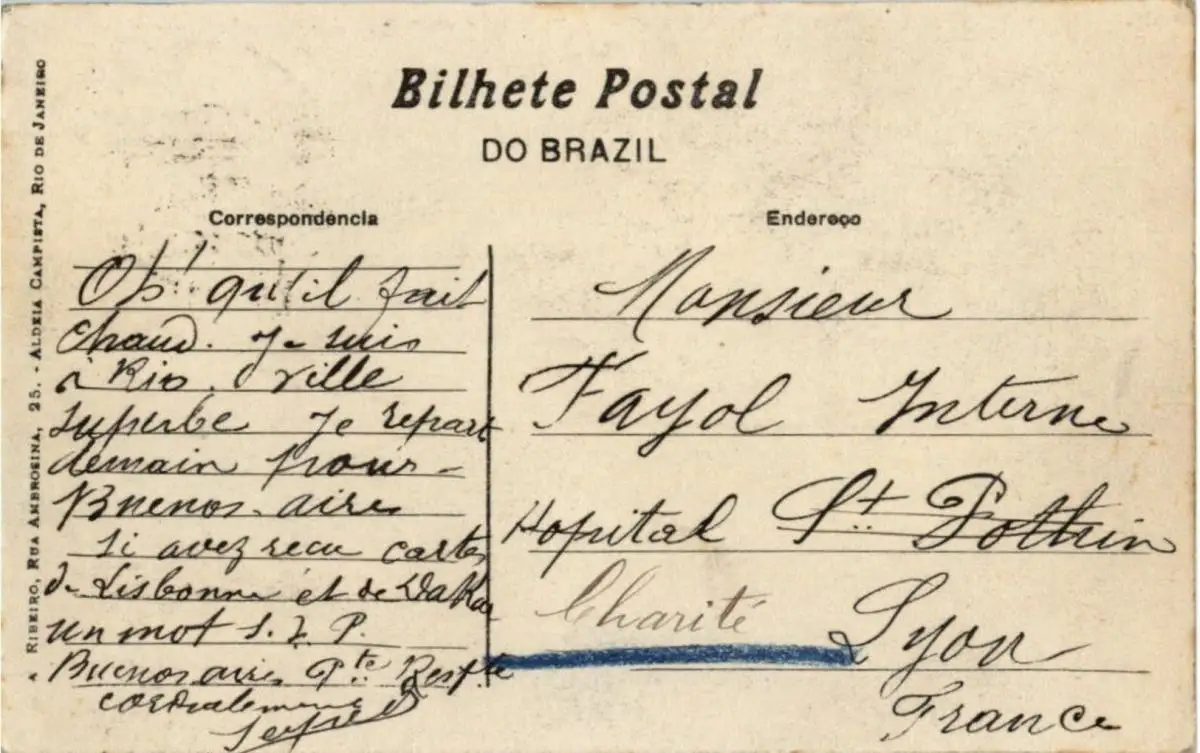 Bilhete Postal
DO BRAZIL
RIBEIRO, RUA AMBROSINA, 25. - ALDEIA CAMPISTA, RIO DE JANEIRO
Correspondencia
Oh! qu'il fait
chaud. Je suis
à Rio. Ville
superbe Je repart
demain pour
Buenos-aires
Si avez recu cartes
de Lisbonne et de Dakar
un mot S. I. P.
Buenos aires Pte Reste
cordialement
Endereço
Monsieur
Fayol Interne
Hopital St Pothin
Charité
Lyon
France